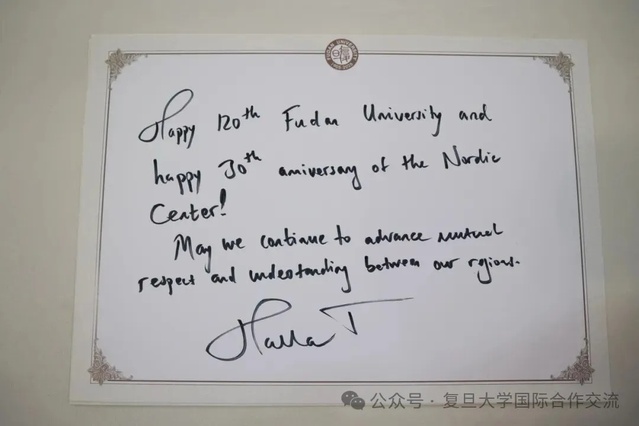 Happy 120th Fudan University and
happy 30th aniversary of the Nordic
Center!
May we continue to advance mutual
respect and understanding between our regions.
Halla T
公众号 · 复旦大学国际合作交流